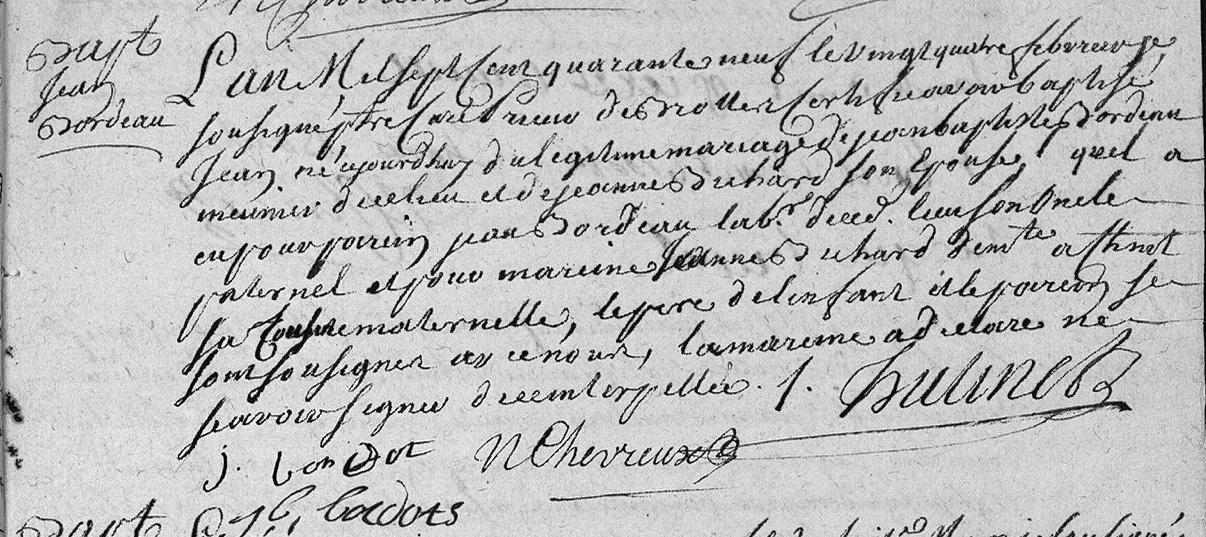 Bapt
Jean
Bordeau
L'an Mil sept cent quarante neuf le vingt quatre febvrier je
soussigné ptre Curé Prieur des certifie avoir baptisé
Jean né ajourdhuy du legitime mariage de jean baptiste Bordeau
meunier de ce lieu et de jeanne Buchard son Epouse, quel a
eu pour parein jean Bordeau lab.r de ced. lieu son Oncle
paternel et pour mareine Jeanne Buchard demte a
sa Tante maternelle, le pere de l'enfant et le parein se
sont sousignes avec nous, la mareine a declaré ne
sçavoir signer de ce interpellée. /.
j. N Chevreux